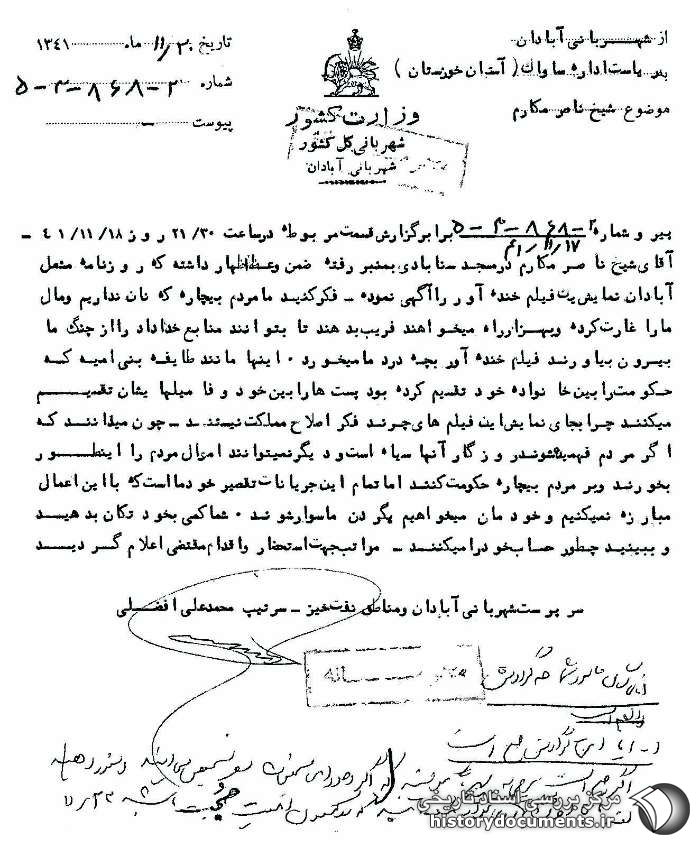 از شهربانی آبادان
بدریاست اداره ساواک (استان خوزستان)
موضوع شیخ ناصر مکارم
تاریخ ۱۱/۲۰ ماه ۱۳۴۱
شماره ۲-۸۶۸-۳-۵
پیوست -
وزارت کشور
شهربانی کل کشور
شهربانی آبادان
محرمانه
پیرو شماره ۲-۸۶۸-۳-۵ ۴۱/۱۱/۱۷ برابر گزارش قسمت مربوطه در ساعت ۲۱/۳۰ روز ۴۱/۱۱/۱۸ -
آقای شیخ ناصر مکارم در مسجد بمنبر رفته ضمن وعظ اظهار داشته که روزنامه مشعل
آبادان نمایش یک فیلم خنده آور را آگهی نموده - فکر کنید ما مردم بیچاره که نان نداریم ومال
ما را غارت کرده وبهزار راه میخواهند فریب بدهند تا بتوانند منابع خداداد را از چنگ ما
بیرون بیاورند فیلم خنده آور بچه درد ما میخورد ۰ اینها مانند طایفه بنی امیه که
حکومت را بین خانواده خود تقسیم کرده بود پست ها را بین خود و فامیلهایشان تقسیم
میکنند چرا بجای نمایش این فیلم های چرند فکر اصلاح مملکت نیستند - چون میدانند که
اگر مردم فهمیده شوند روزگار آنها سیاه است و دیگر نمیتوانند اموال مردم را اینطور
بخورند وبر مردم بیچاره حکومت کنند اما تمام این جریانات تقصیر خود ما است که با این اعمال
مبارزه نمیکنیم و خودمان میخواهیم بگردن ما سوار شوند ۰ شما کمی بخود تکان بدهید
و ببینید چطور حساب خود را میکنند - مراتب جهت استحضار واقدام مقتضی اعلام گردید
سرپرست شهربانی آبادان ومناطق نفت خیز - سرتیپ محمدعلی افضلی
محرمانه
۱- آیا این گزارش صحیح است
مرکز بررسی اسناد تاریخی
historydocuments.ir